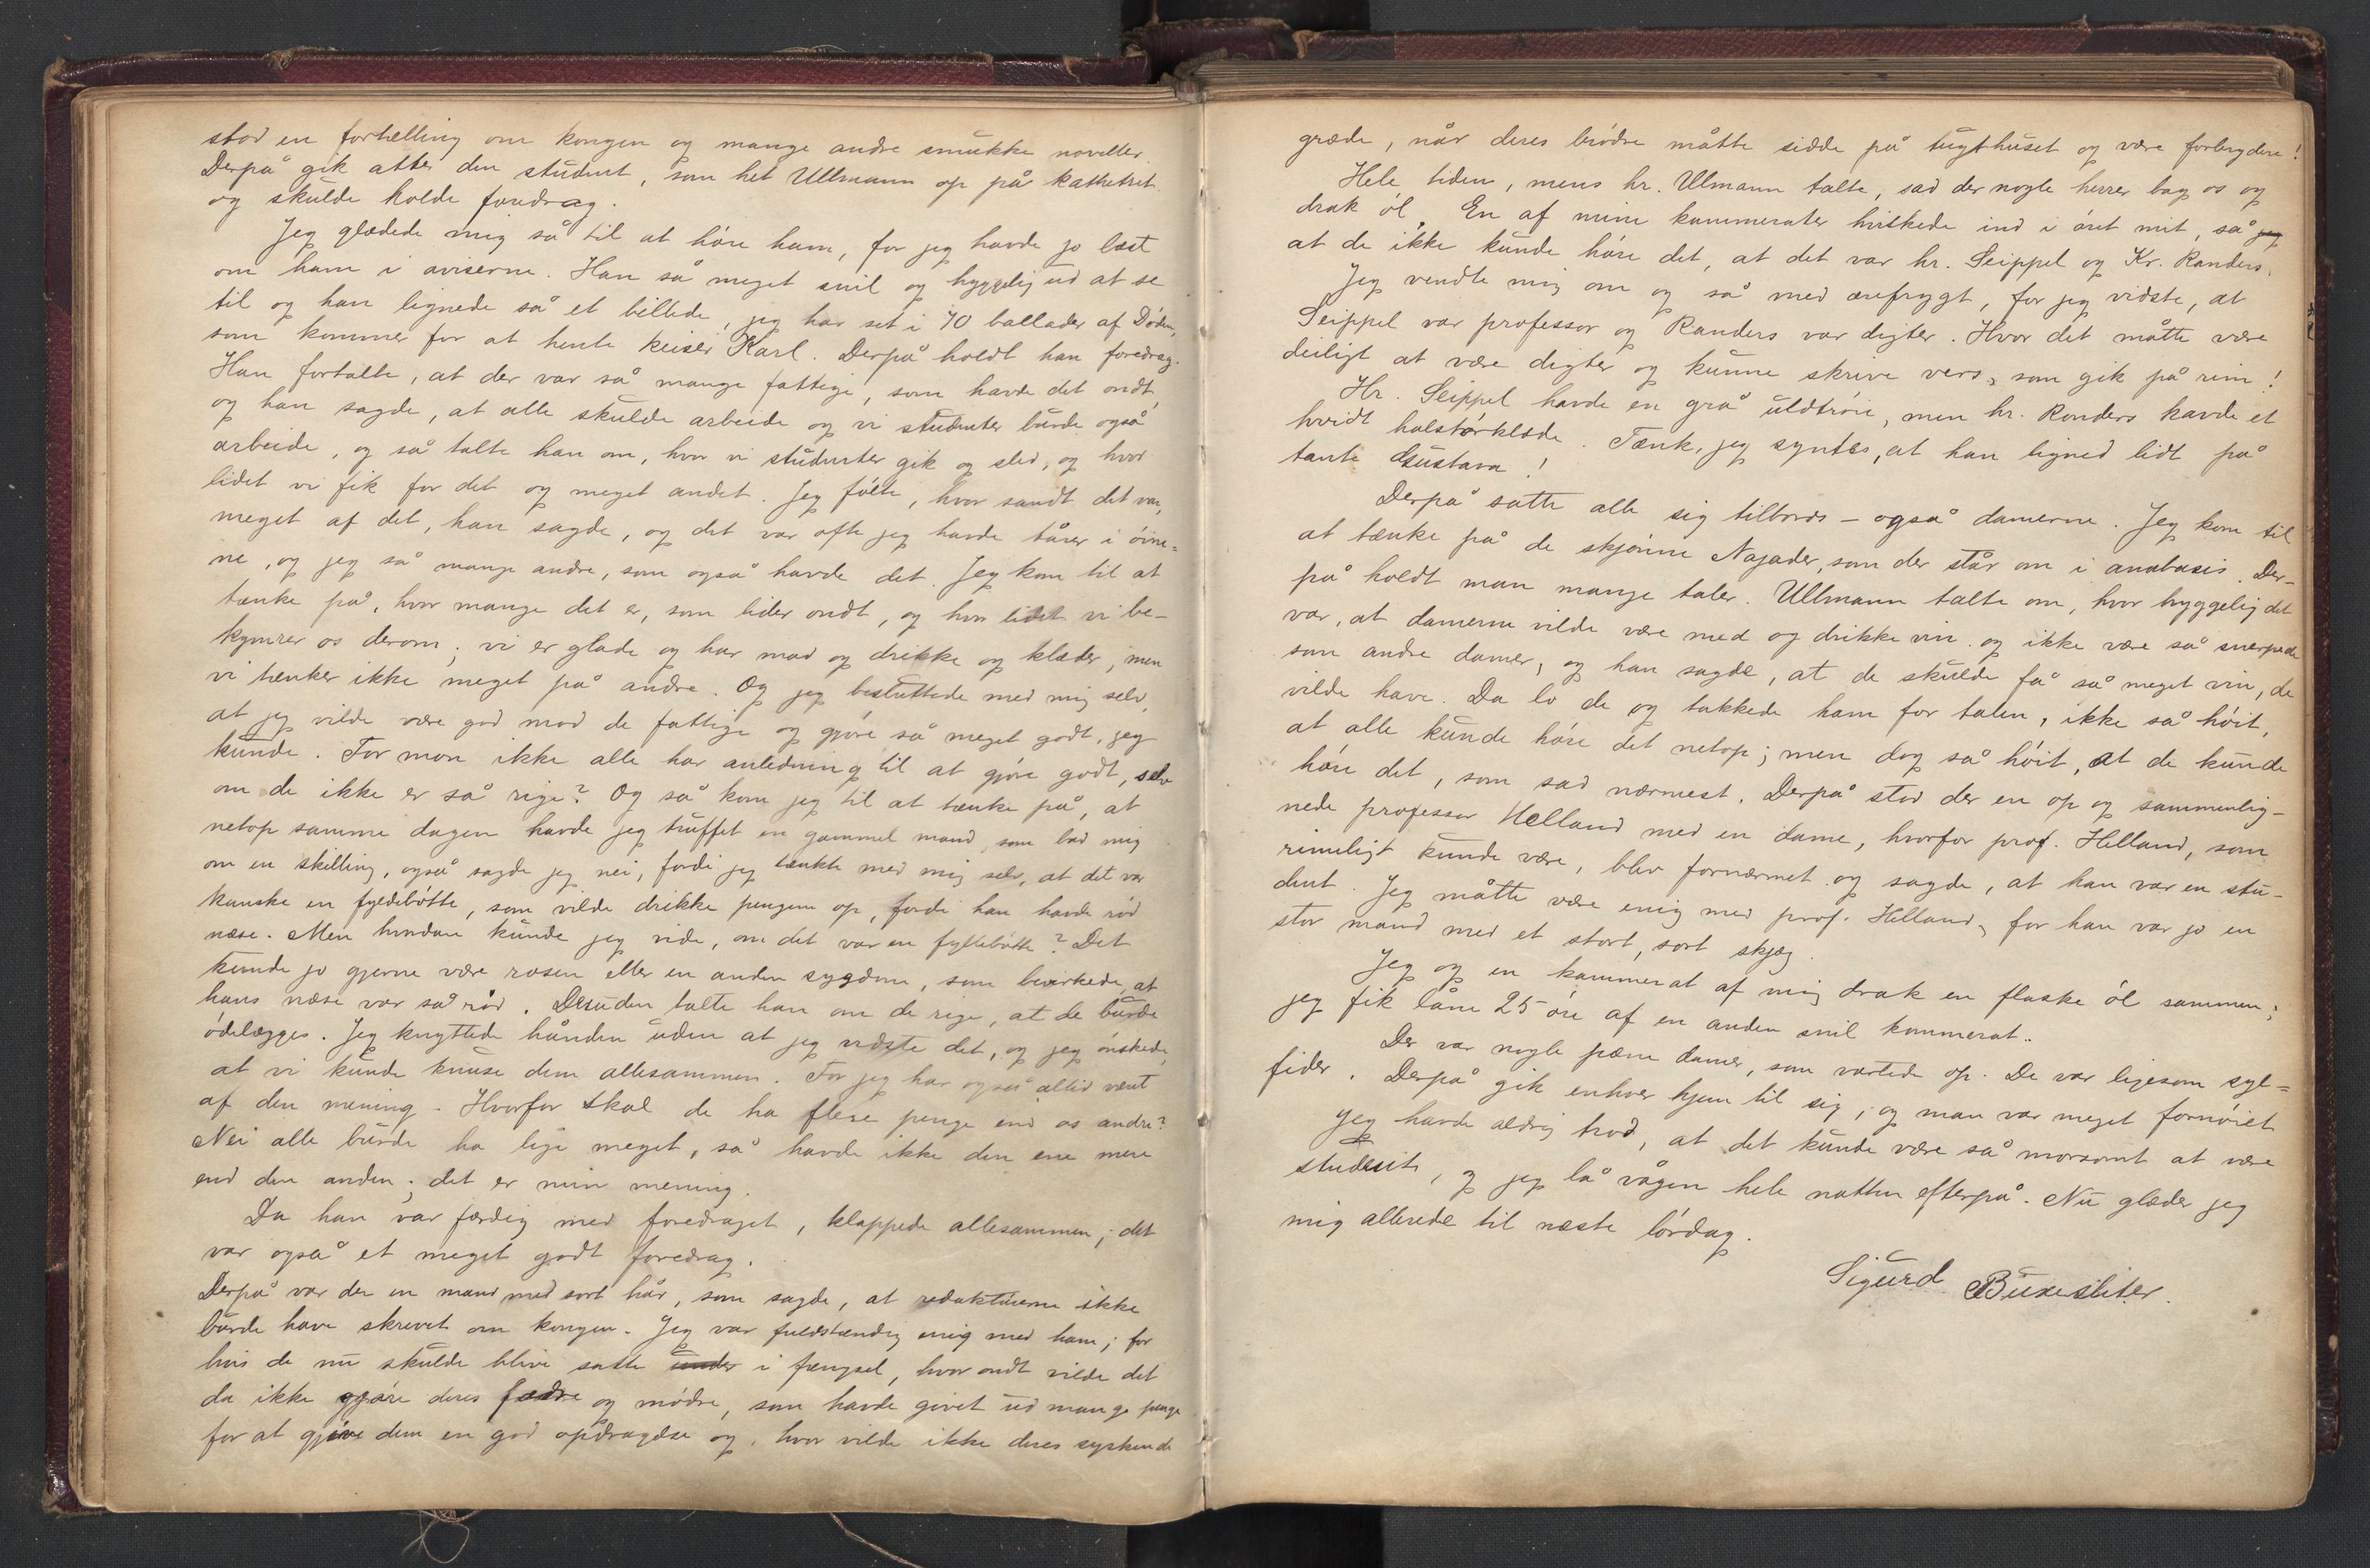 stod en fortælling om kongen og mange andre smukke noveller.
Derpå gik atter den student, som het Ullmann op på kathetret
og skulde holde foredrag.
Jeg glædede mig så til at høre ham, for jeg havde jo læst
om ham i aviserne. Han så meget snil og hyggelig ud at se
til og han lignede så et billede, jeg har set i 70 ballader af Døden,
som kommer for at hente keiser Karl. Derpå holdt han foredrag.
Han fortalte, at der var så mange fattige, som havde det ondt,
og han sagde, at alle skulde arbeide og vi studenter burde også
arbeide, og så talte han om, hvor vi studenter gik og sled, og hvor
lidet vi fik for det og meget andet. Jeg følte, hvor sandt det var,
meget af det, han sagde, og det var ofte jeg havde tårer i øine=
ne, og jeg så mange andre, som også havde det. Jeg kom til at
tænke på, hvor mange det er, som lider ondt, og hvor lidet vi be-
kymrer os derom; vi er glade og har mad og drikke og klæder, men
vi tænker ikke meget på andre. Og jeg besluttede med mig selv,
at jeg vilde være god mod de fattige og gjøre så meget godt, jeg
kunde. For mon ikke alle har anledning til at gjøre godt, selv
om de ikke er så rige? Og så kom jeg til at tænke på, at
netop samme dagen havde jeg truffet en gammel mand, som bad mig
om en skilling, også sagde jeg nei, fordi jeg tænkte med mig selv, at det var
kanske en fyldebøtte, som vilde drikke pengene op, fordi han havde rød
næse. Men hvordan kunde jeg vide, om det var en fyllebøtte? Det
kunde jo gjerne være rosen eller en anden sygdom, som bevirkede, at
hans næse var så rød. Desuden talte han om de rige, at de burde
ødelægges. Jeg knyttede hånden uden at jeg vidste det, og jeg ønskede,
at vi kunde knuse dem allesammen. For jeg har også altid vært
af den mening. Hvorfor skal de ha flere penge end os andre?
Nei alle burde ha lige meget, så havde ikke den ene mere
end den anden; det er min mening.
Da han var færdig med foredraget, klappede allesammen; det
var også et meget godt foredrag.
Derpå var der en mand med sort hår, som sagde, at redaktørerne ikke
burde have skrevet om kongen. Jeg var fuldstændig enig med ham; for
hvis de nu skulde blive satte under i fængsel, hvor ondt vilde det
da ikke gjøre deres fædre og mødre, som havde givet ud mange penge
for at give dem en god opdragelse og, hvor vilde ikke deres syskende
græde, når deres brødre måtte sidde på tugthuset og være forbrydere!
Hele tiden, mens hr. Ulmann talte, sad der nogle herrer bag os og
drak øl. En af mine kammerater hviskede ind i øret mit, så jeg
at de ikke kunde høre det, at det var hr. Seippel og Kr. Randers.
Jeg vendte mig om og så med ærefrygt, for jeg vidste, at
Seippel var professor og Randers var digter. Hvor det måtte være
deiligt at være digter og kunne skrive vers, som gik på rim!
Hr. Seippel havde en grå uldtrøie, men hr. Randers havde et
hvidt halstørklæde. Tænk, jeg syntes, at han ligned lidt på
tante Gustava!
Derpå satte alle sig tilbords – også damerne. Jeg kom til
at tænke på de skjønne Najader, som der står om i anabasis. Der-
på holdt man mange taler. Ullmann talte om, hvor hyggelig det
var, at damerne vilde være med og drikke vin og ikke være så snerpede
som andre damer, og han sagde, at de skulde få så meget vin, de
vilde have. Da lo de og takkede ham for talen, ikke så høit,
at alle kunde høre det netop; men dog så høit, at de kunde
høre det, som sad nærmest. Derpå stod der en op og sammenlig-
nede professor Helland med en dame, hvorfor prof. Helland, som
rimeligt kunde være, blev fornærmet og sagde, at han var en stu-
dent. Jeg måtte være enig med prof. Helland, for han var jo en
stor mand med et stort, sort skjæg.
Jeg og en kammerat af mig drak en flaske øl sammen;
jeg fik låne 25 øre af en anden snil kammerat.
Der var nogle pæne damer, som vartede op. De var ligesom syl=
fider. Derpå gik enhver hjem til sig, og man var meget fornøiet
Jeg havde aldrig trod, at det kunde være så morsomt at være
student, og jeg lå vågen hele natten efterpå. Nu glæder jeg
mig allerede til næste lørdag.
Sigurd Buxesliter.